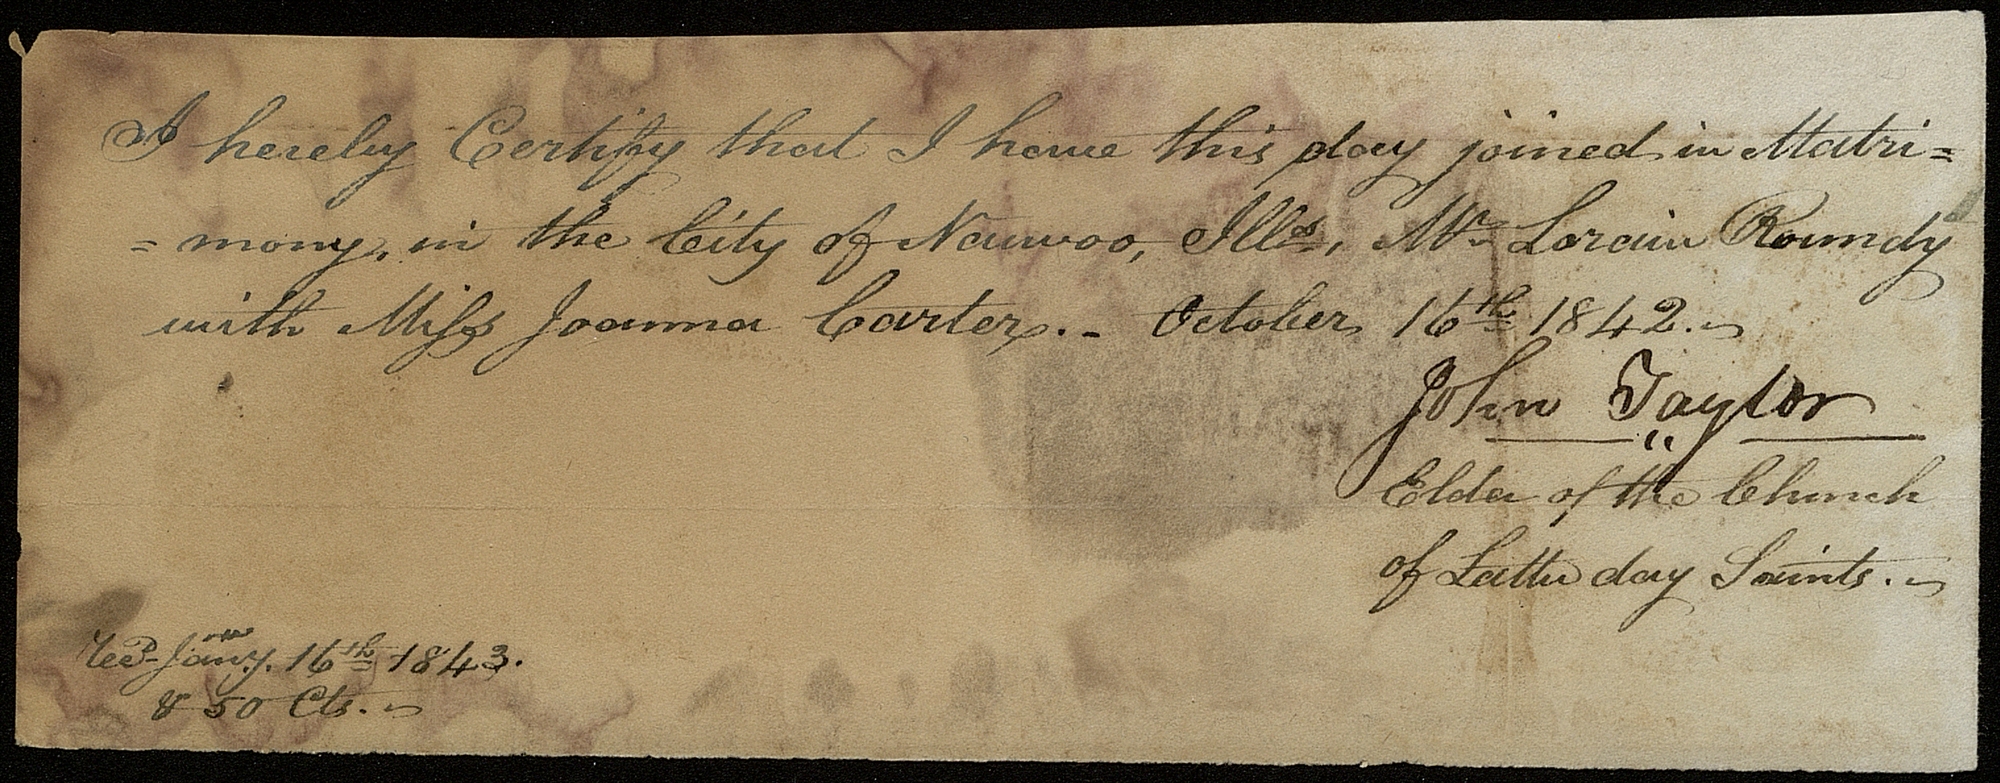 I hereby Certify that I have this day joined in Matri=
=mony, in the City of Nauvoo, Ills, Mr Lorain Roundy
with Miss Joanna Carter. - October 16th 1842.
John Taylor
Elder of the Church
of Latter day Saints.
Recd Jany. 16th 1843.
& 50 Cts.